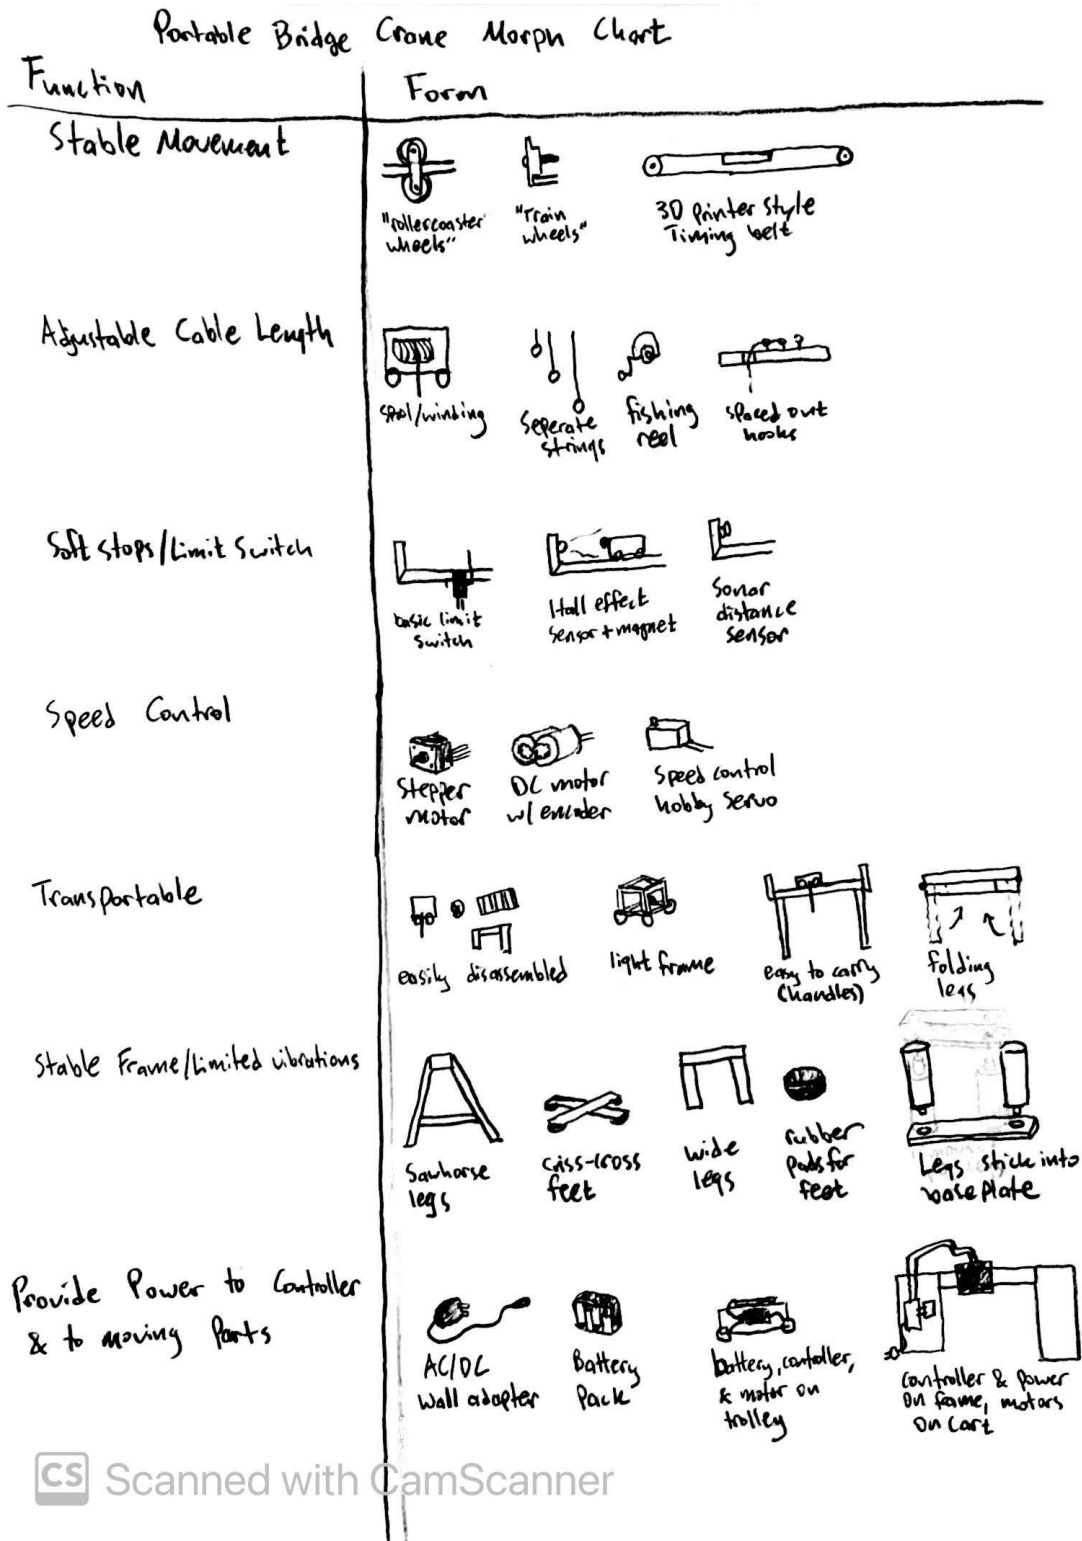 Portable Bridge Crane Morph Chart
Function
Form
Stable Movement
"rollercoaster
wheels"
"Train
wheels"
3D Printer Style
Timing belt
Adjustable Cable Length
spool/winding
Seperate
strings
fishing
reel
spaced out
hooks
Soft stops/Limit Switch
basic limit
switch
Hall effect
sensor + magnet
Sonar
distance
sensor
Speed Control
Stepper
motor
DC motor
w/ encoder
Speed control
hobby servo
Transportable
easily disassembled
light frame
easy to carry
(handles)
folding
legs
Stable Frame/Limited vibrations
Sawhorse
legs
criss-cross
feet
wide
legs
rubber
pads for
feet
Legs stick into
baseplate
Provide Power to Controller
& to moving Parts
AC/DC
Wall adapter
Battery
Pack
battery, controller,
& motor on
trolley
controller & power
on frame, motors
on cart
CS Scanned with CamScanner